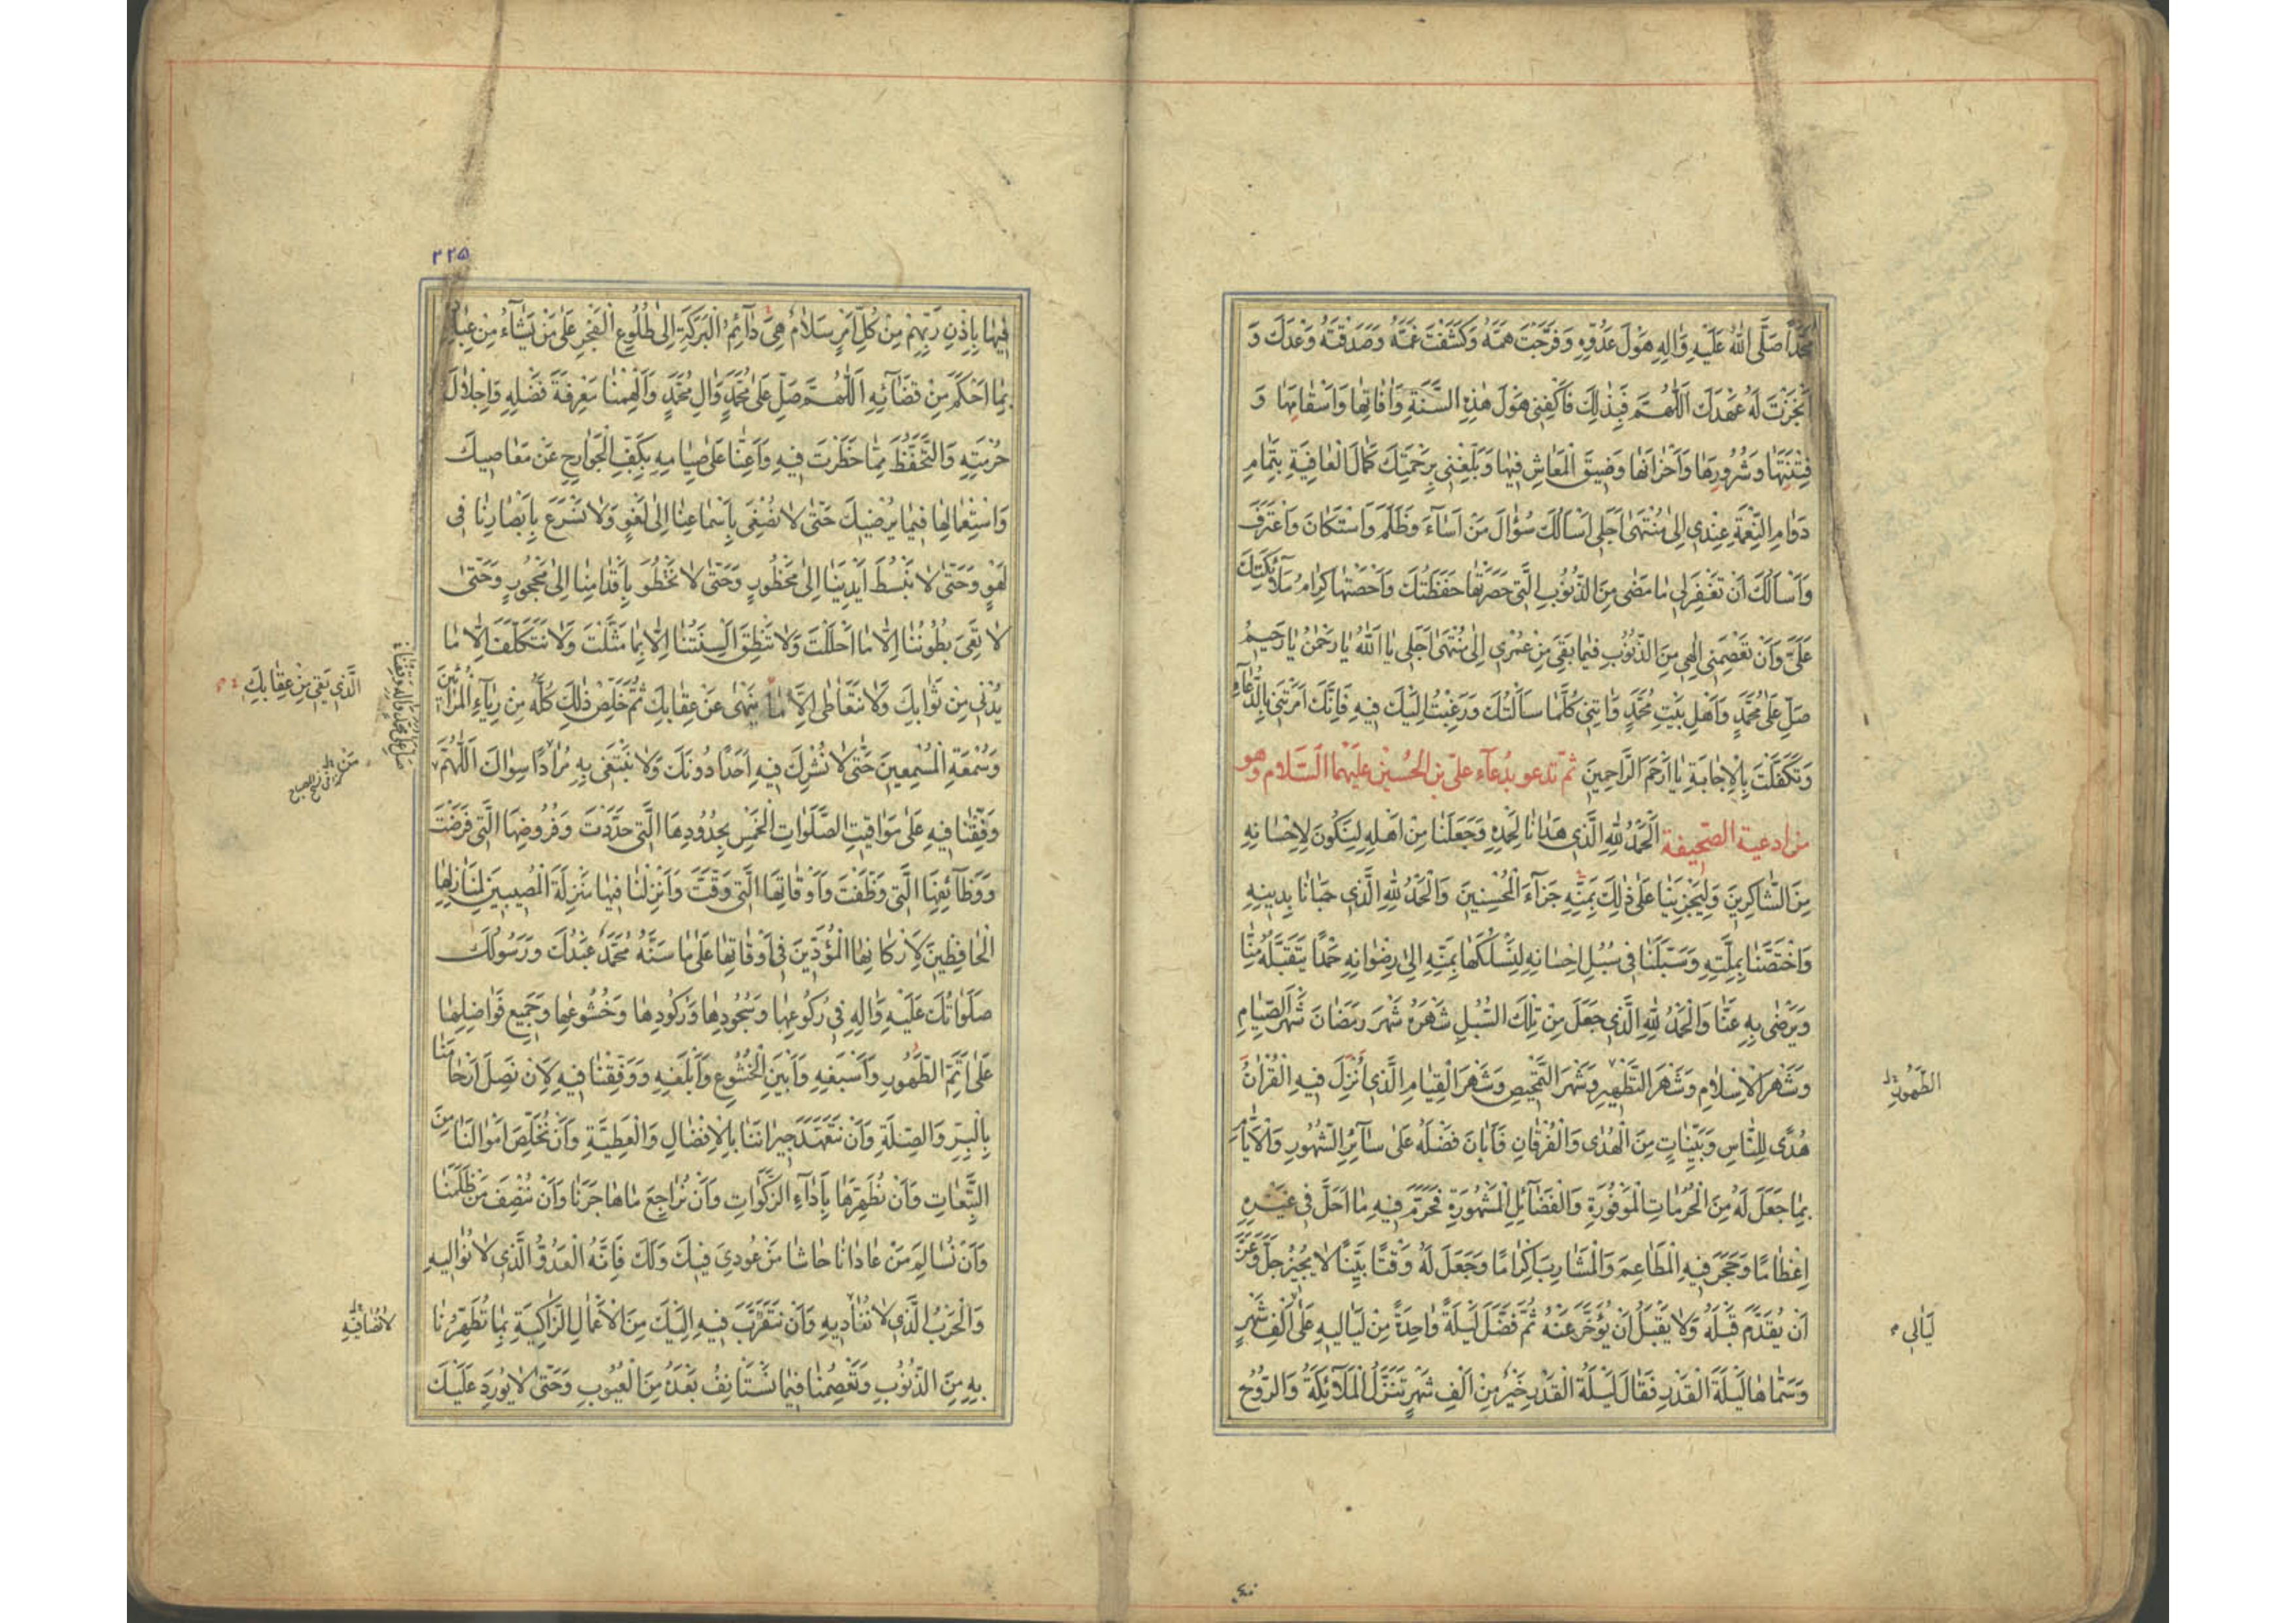 مُحَمَّداً صَلَّى اللهُ عَلَيْهِ وَاٰلِهِ هَوْلَ عَدُوِّهِ وَفَرَّجْتَ هَمَّهُ وَكَشَفْتَ غَمَّهُ وَصَدَقْتَهُ وَعْدَكَ وَ
اَنْجَزْتَ لَهُ عَهْدَكَ اَللّٰهُمَّ فَبِذٰلِكَ فَاكْفِنِي هَوْلَ هٰذِهِ السَّنَةِ وَاٰفَاتِهَا وَاَسْقَامِهَا وَ
فِتْنَتِهَا وَشُرُورِهَا وَاَحْزَانِهَا وَضِيقَ الْمَعَاشِ فِيهَا وَبَلِّغْنِي بِرَحْمَتِكَ كَمَالَ الْعَافِيَةِ بِتَمَامِ
دَوَامِ النِّعْمَةِ عِنْدِي اِلىٰ مُنْتَهىٰ اَجَلِي اَسْاَلُكَ سُؤَالَ مَنْ اَسَآءَ وَظَلَمَ وَاسْتَكَانَ وَاعْتَرَفَ
وَاَسْاَلُكَ اَنْ تَغْفِرَ لِي مَا مَضىٰ مِنَ الذُّنُوبِ الَّتِي حَصَرَتْهَا حَفَظَتُكَ وَاَحْصَتْهَا كِرَامُ مَلَآئِكَتِكَ
عَلَيَّ وَاَنْ تَعْصِمَنِي اِلٰهِي مِنَ الذُّنُوبِ فِيمَا بَقِيَ مِنْ عُمْرِي اِلىٰ مُنْتَهىٰ اَجَلِي يَا اَللهُ يَا رَحْمٰنُ يَا رَحِيمُ
صَلِّ عَلىٰ مُحَمَّدٍ وَاَهْلِ بَيْتِ مُحَمَّدٍ وَاٰتِنِي كُلَّمَا سَاَلْتُكَ وَرَغِبْتُ اِلَيْكَ فِيهِ فَاِنَّكَ اَمَرْتَنِي بِالدُّعَآءِ
وَتَكَفَّلْتَ بِالْاِجَابَةِ يَا اَرْحَمَ الرَّاحِمِينَ ثم تدعو بدُعآءِ عليّ بن الحُسين عليهما السّلام وهو
من ادعية الصّحيفة اَلْحَمْدُ لِلّٰهِ الَّذِي هَدَانَا لِحَمْدِهِ وَجَعَلَنَا مِنْ اَهْلِهِ لِنَكُونَ لِاِحْسَانِهِ
مِنَ الشَّاكِرِينَ وَلِيَجْزِيَنَا عَلىٰ ذٰلِكَ بِمَنِّهِ جَزَآءَ الْمُحْسِنِينَ وَالْحَمْدُ لِلّٰهِ الَّذِي حَبَانَا بِدِينِهِ
وَاخْتَصَّنَا بِمِلَّتِهِ وَسَبَّلَنَا فِي سُبُلِ اِحْسَانِهِ لِنَسْلُكَهَا بِمَنِّهِ اِلىٰ رِضْوَانِهِ حَمْداً يَتَقَبَّلُهُ مِنَّا
وَيَرْضىٰ بِهِ عَنَّا وَالْحَمْدُ لِلّٰهِ الَّذِي جَعَلَ مِنْ تِلْكَ السُّبُلِ شَهْرَهُ شَهْرَ رَمَضَانَ شَهْرَ الصِّيَامِ
وَشَهْرَ الْاِسْلَامِ وَشَهْرَ التَّطْهِيرِ وَشَهْرَ التَّمْحِيصِ وَشَهْرَ الْقِيَامِ الَّذِي اُنْزِلَ فِيهِ الْقُرْاٰنُ
الطَّهُورِ
هُدًى لِلنَّاسِ وَبَيِّنَاتٍ مِنَ الْهُدىٰ وَالْفُرْقَانِ فَاَبَانَ فَضْلَهُ عَلىٰ سَآئِرِ الشُّهُورِ وَالْاَيَّامِ
بِمَا جَعَلَ لَهُ مِنَ الْحُرُمَاتِ الْمَوْفُورَةِ وَالْفَضَآئِلِ الْمَشْهُورَةِ فَحَرَّمَ فِيهِ مَا اَحَلَّ فِي غَيْرِهِ
اِعْظَامًا وَحَجَرَ فِيهِ الْمَطَاعِمَ وَالْمَشَارِبَ اِكْرَامًا وَجَعَلَ لَهُ وَقْتًا بَيِّنًا لَا يُجِيزُ جَلَّ وَعَزَّ
اَنْ يُقَدَّمَ قَبْلَهُ وَلَا يَقْبَلُ اَنْ يُؤَخَّرَ عَنْهُ ثُمَّ فَضَّلَ لَيْلَةً وَاحِدَةً مِنْ لَيَالِيهِ عَلىٰ اَلْفِ شَهْرٍ
لَيَالِي
وَسَمَّاهَا لَيْلَةَ الْقَدْرِ فَقَالَ لَيْلَةُ الْقَدْرِ خَيْرٌ مِنْ اَلْفِ شَهْرٍ تَنَزَّلُ الْمَلَآئِكَةُ وَالرُّوحُ
٢٢٥
فِيهَا بِاِذْنِ رَبِّهِمْ مِنْ كُلِّ اَمْرٍ سَلَامٌ هِيَ دَآئِمُ الْبَرَكَةِ اِلىٰ طُلُوعِ الْفَجْرِ عَلىٰ مَنْ يَشَآءُ مِنْ عِبَادِهِ
بِمَا اَحْكَمَ مِنْ قَضَآئِهِ اَللّٰهُمَّ صَلِّ عَلىٰ مُحَمَّدٍ وَاٰلِ مُحَمَّدٍ وَاَلْهِمْنَا مَعْرِفَةَ فَضْلِهِ وَاِجْلَالَ
حُرْمَتِهِ وَالتَّحَفُّظَ مِمَّا حَظَرْتَ فِيهِ وَاَعِنَّا عَلىٰ صِيَامِهِ بِكَفِّ الْجَوَارِحِ عَنْ مَعَاصِيكَ
وَاسْتِعْمَالِهَا فِيمَا يُرْضِيكَ حَتّىٰ لَا نُصْغِيَ بِاَسْمَاعِنَا اِلىٰ لَغْوٍ وَلَا نُسْرِعَ بِاَبْصَارِنَا فِي
لَهْوٍ وَحَتّىٰ لَا نَبْسُطَ اَيْدِيَنَا اِلىٰ مَحْظُورٍ وَحَتّىٰ لَا نَخْطُوَ بِاَقْدَامِنَا اِلىٰ مَحْجُورٍ وَحَتّىٰ
لَا تَعِيَ بُطُونُنَا اِلَّا مَا اَحْلَلْتَ وَلَا تَنْطِقَ اَلْسِنَتُنَا اِلَّا بِمَا مَثَّلْتَ وَلَا نَتَكَلَّفَ اِلَّا مَا
يُدْنِي مِنْ ثَوَابِكَ وَلَا نَتَعَاطىٰ اِلَّا مَا يَنْهىٰ عَنْ عِقَابِكَ ثُمَّ خَلِّصْ ذٰلِكَ كُلَّهُ مِنْ رِيَآءِ الْمُرَائِينَ
الَّذِي يَقِي مِنْ عِقَابِكَ
وَسُمْعَةِ الْمُسْمِعِينَ حَتّىٰ لَا نُشْرِكَ فِيهِ اَحَداً دُونَكَ وَلَا نَبْتَغِيَ بِهِ مُرَادًا سِوَاكَ اَللّٰهُمَّ
صَلِّ عَلىٰ مُحَمَّدٍ وَاٰلِهِ وَقِفْنَا
وَفِّقْنَا فِيهِ عَلىٰ مَوَاقِيتِ الصَّلَوَاتِ الْخَمْسِ بِحُدُودِهَا الَّتِي حَدَّدْتَ وَفُرُوضِهَا الَّتِي فَرَضْتَ
وَوَظَآئِفِهَا الَّتِي وَظَّفْتَ وَاَوْقَاتِهَا الَّتِي وَقَّتَّ وَاَنْزِلْنَا فِيهَا مَنْزِلَةَ الْمُصِيبِينَ لِمَنَازِلِهَا
الْحَافِظِينَ لِاَرْكَانِهَا الْمُؤَدِّينَ فِي اَوْقَاتِهَا عَلىٰ مَا سَنَّهُ مُحَمَّدٌ عَبْدُكَ وَرَسُولُكَ
صَلَوَاتُكَ عَلَيْهِ وَاٰلِهِ فِي رُكُوعِهَا وَسُجُودِهَا وَرُكُودِهَا وَخُشُوعِهَا وَجَمِيعِ فَوَاضِلِهَا
عَلىٰ اَتَمِّ الطَّهُورِ وَاَسْبَغِهِ وَاَبْيَنِ الْخُشُوعِ وَاَبْلَغِهِ وَوَفِّقْنَا فِيهِ لِاَنْ نَصِلَ اَرْحَامَنَا
بِالْبِرِّ وَالصِّلَةِ وَاَنْ نَتَعَهَّدَ جِيرَانَنَا بِالْاِفْضَالِ وَالْعَطِيَّةِ وَاَنْ نُخَلِّصَ اَمْوَالَنَا مِنَ
التَّبِعَاتِ وَاَنْ نُطَهِّرَهَا بِاَدَآءِ الزَّكَوَاتِ وَاَنْ نُرَاجِعَ مَا هَاجَرَنَا وَاَنْ نُنْصِفَ مَنْ ظَلَمَنَا
وَاَنْ نُسَالِمَ مَنْ عَادَانَا حَاشَا مَنْ عُودِيَ فِيكَ وَلَكَ فَاِنَّهُ الْعَدُوُّ الَّذِي لَا نُوَالِيهِ
وَالْحَرْبُ الَّذِي لَا نُفَادِيهِ وَاَنْ نَتَقَرَّبَ فِيهِ اِلَيْكَ مِنَ الْاَعْمَالِ الزَّاكِيَةِ بِمَا تُطَهِّرُنَا
لَا نُصَافِيهِ
بِهِ مِنَ الذُّنُوبِ وَتَعْصِمُنَا فِيمَا نَسْتَانِفُ بَعْدَهُ مِنَ الْعُيُوبِ وَحَتّىٰ لَا يُورِدَ عَلَيْكَ